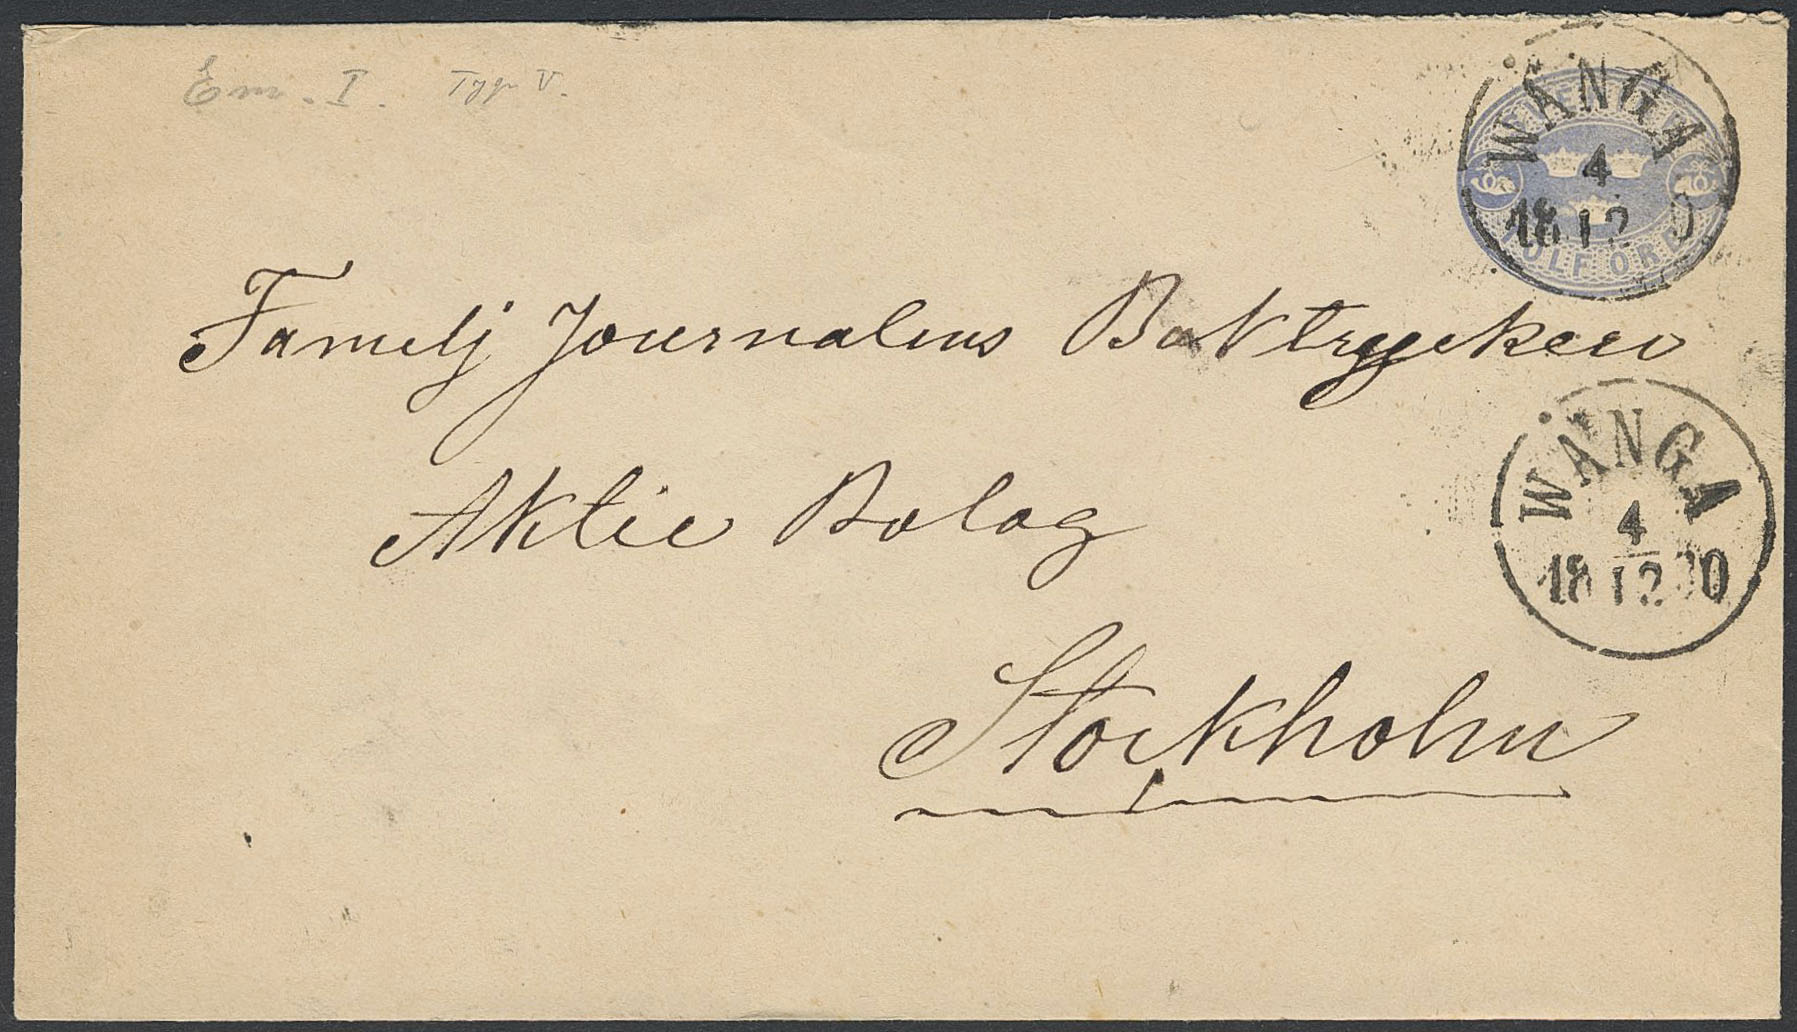 Em. I. Typ V.
WÅNGA
4
18 12 0
TOLF ÖRE
Familj Journalens Boktryckeri
WÅNGA
4
18 12 80
Aktie Bolag
Stockholm